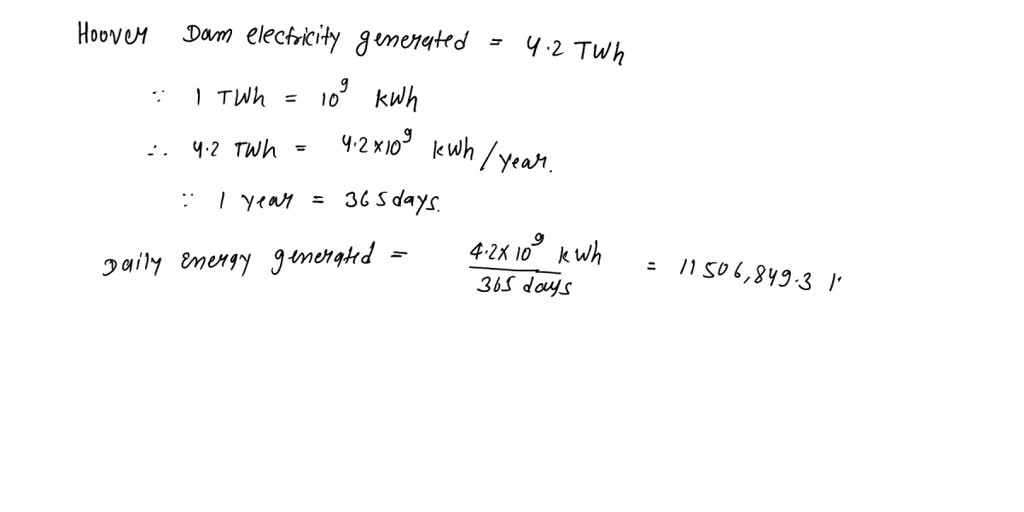 Hoover Dam electricity generated = 4.2 TWh
∵ 1 TWh = 10^9 kWh
∴ 4.2 TWh = 4.2×10^9 kWh/year.
∵ 1 year = 365 days.
Daily energy generated = 4.2×10^9 kWh / 365 days = 11506,849.3